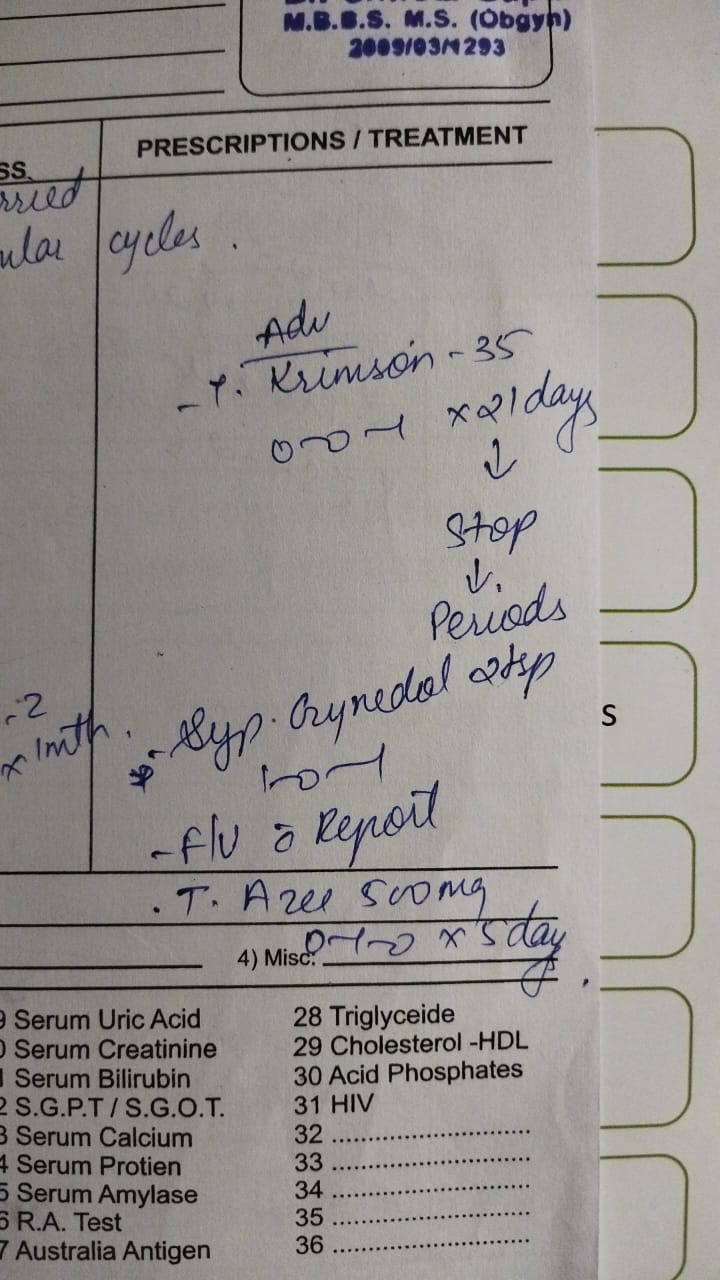 M.B.B.S. M.S. (Obgyn)
2009/03/1293
PRESCRIPTIONS / TREATMENT
SS.
rried
ular cycles.
Adv
- T. Krimson - 35
0-0-1 x 21 days
↓
Stop
↓
Periods
- 2
x 1mth.
- Syp. Gynedol 2tsp
1-0-1
- F/U c̄ Report
. T. Azee 500mg
0-1-0 x 5 days.
4) Misc:
S
9 Serum Uric Acid
0 Serum Creatinine
1 Serum Bilirubin
2 S.G.P.T / S.G.O.T.
3 Serum Calcium
4 Serum Protien
5 Serum Amylase
6 R.A. Test
7 Australia Antigen
28 Triglyceide
29 Cholesterol -HDL
30 Acid Phosphates
31 HIV
32 ..............................
33 ..............................
34 ..............................
35 ..............................
36 ..............................